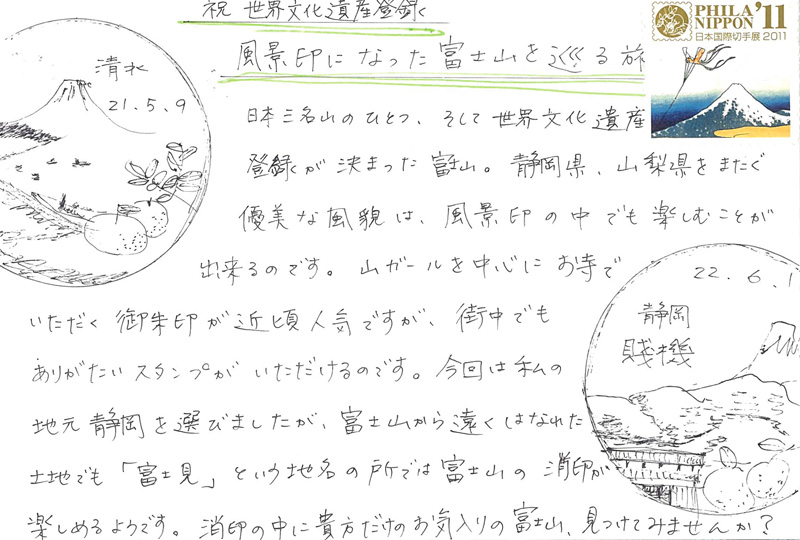 祝 世界文化遺産登録
風景印になった富士山を巡る旅
PHILA
NIPPON '11
日本国際切手展 2011
清水
21.5.9
日本三名山のひとつ、そして世界文化遺産
登録が決まった富士山。静岡県、山梨県をまたぐ
優美な風貌は、風景印の中でも楽しむことが
出来るのです。山ガールを中心にお寺で
いただく御朱印が近頃人気ですが、街中でも
ありがたいスタンプがいただけるのです。今回は私の
地元静岡を選びましたが、富士山から遠くはなれた
土地でも「富士見」という地名の所では富士山の消印が
楽しめるようです。消印の中に貴方だけのお気入りの富士山、見つけてみませんか?
22.6.1
静岡
賤機